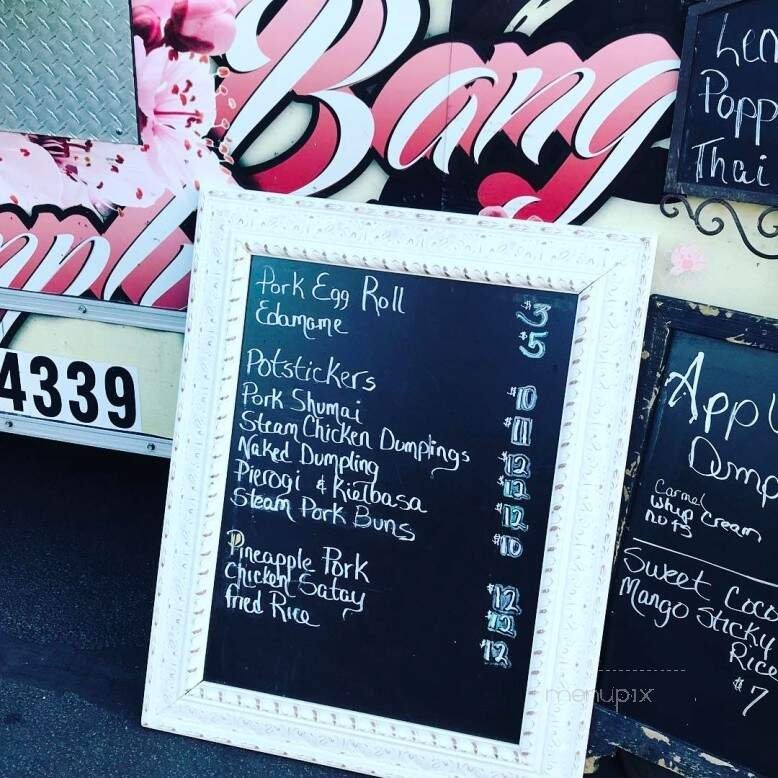 Bang
4339
Pork Egg Roll $3
Edamame $5
Potstickers $10
Pork Shumai $11
Steam Chicken Dumplings $12
Naked Dumpling $12
Pierogi & Kielbasa $12
Steam Pork Buns $10
Pineapple Pork $12
Chicken Satay $12
Fried Rice $12
Popp
Thai
Carmel
Whip Cream
nuts
Sweet
Mango Sticky
Rice
$7
menupix